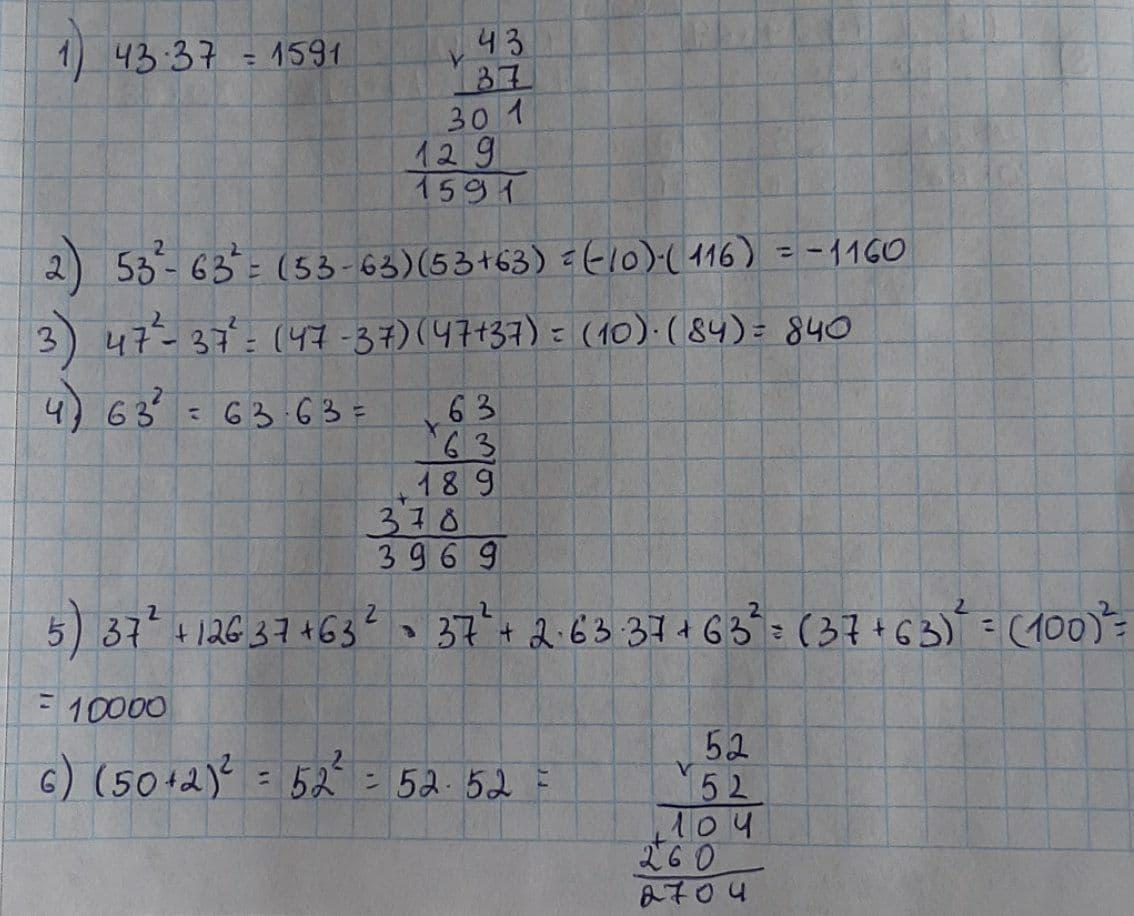 1) 43·37 = 1591
× 43
37
301
129
1591
2) 53² - 63² = (53 - 63)(53+63) = (-10)·(116) = -1160
3) 47² - 37² = (47 - 37)(47+37) = (10)·(84) = 840
4) 63² = 63·63 =
× 63
63
+ 189
378
3969
5) 37² + 126·37 + 63² = 37² + 2·63·37 + 63² = (37 + 63)² = (100)² =
= 10000
6) (50+2)² = 52² = 52·52 =
× 52
52
+ 104
260
2704